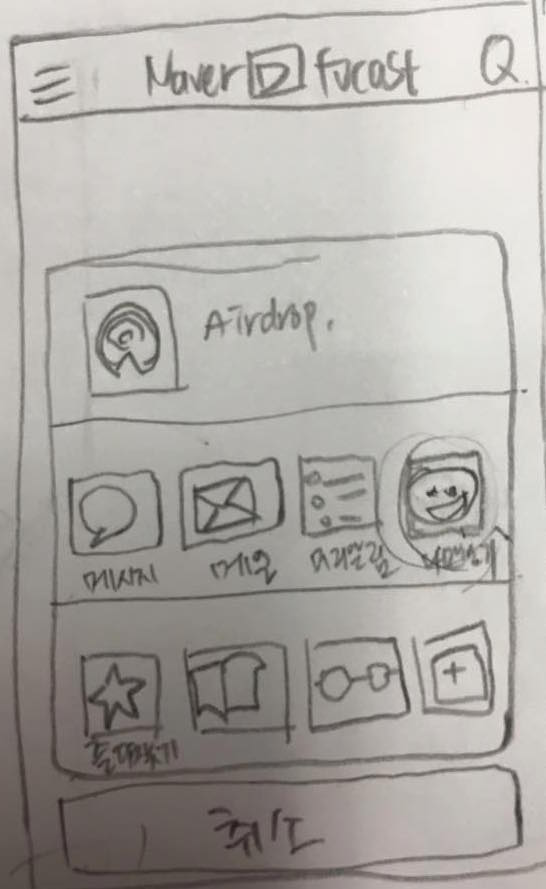 Naver D focast
Airdrop.
메시지 메일 미리알림
취소